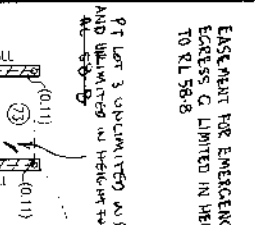 EASEMENT FOR EMERGENC
EGRESS C LIMITED IN HEI
TO RL 58.8
PT LOT 3 UNLIMITED IN
AND UNLIMITED IN HEIGHT
RL 58.8
(0.11)
73
(0.11)